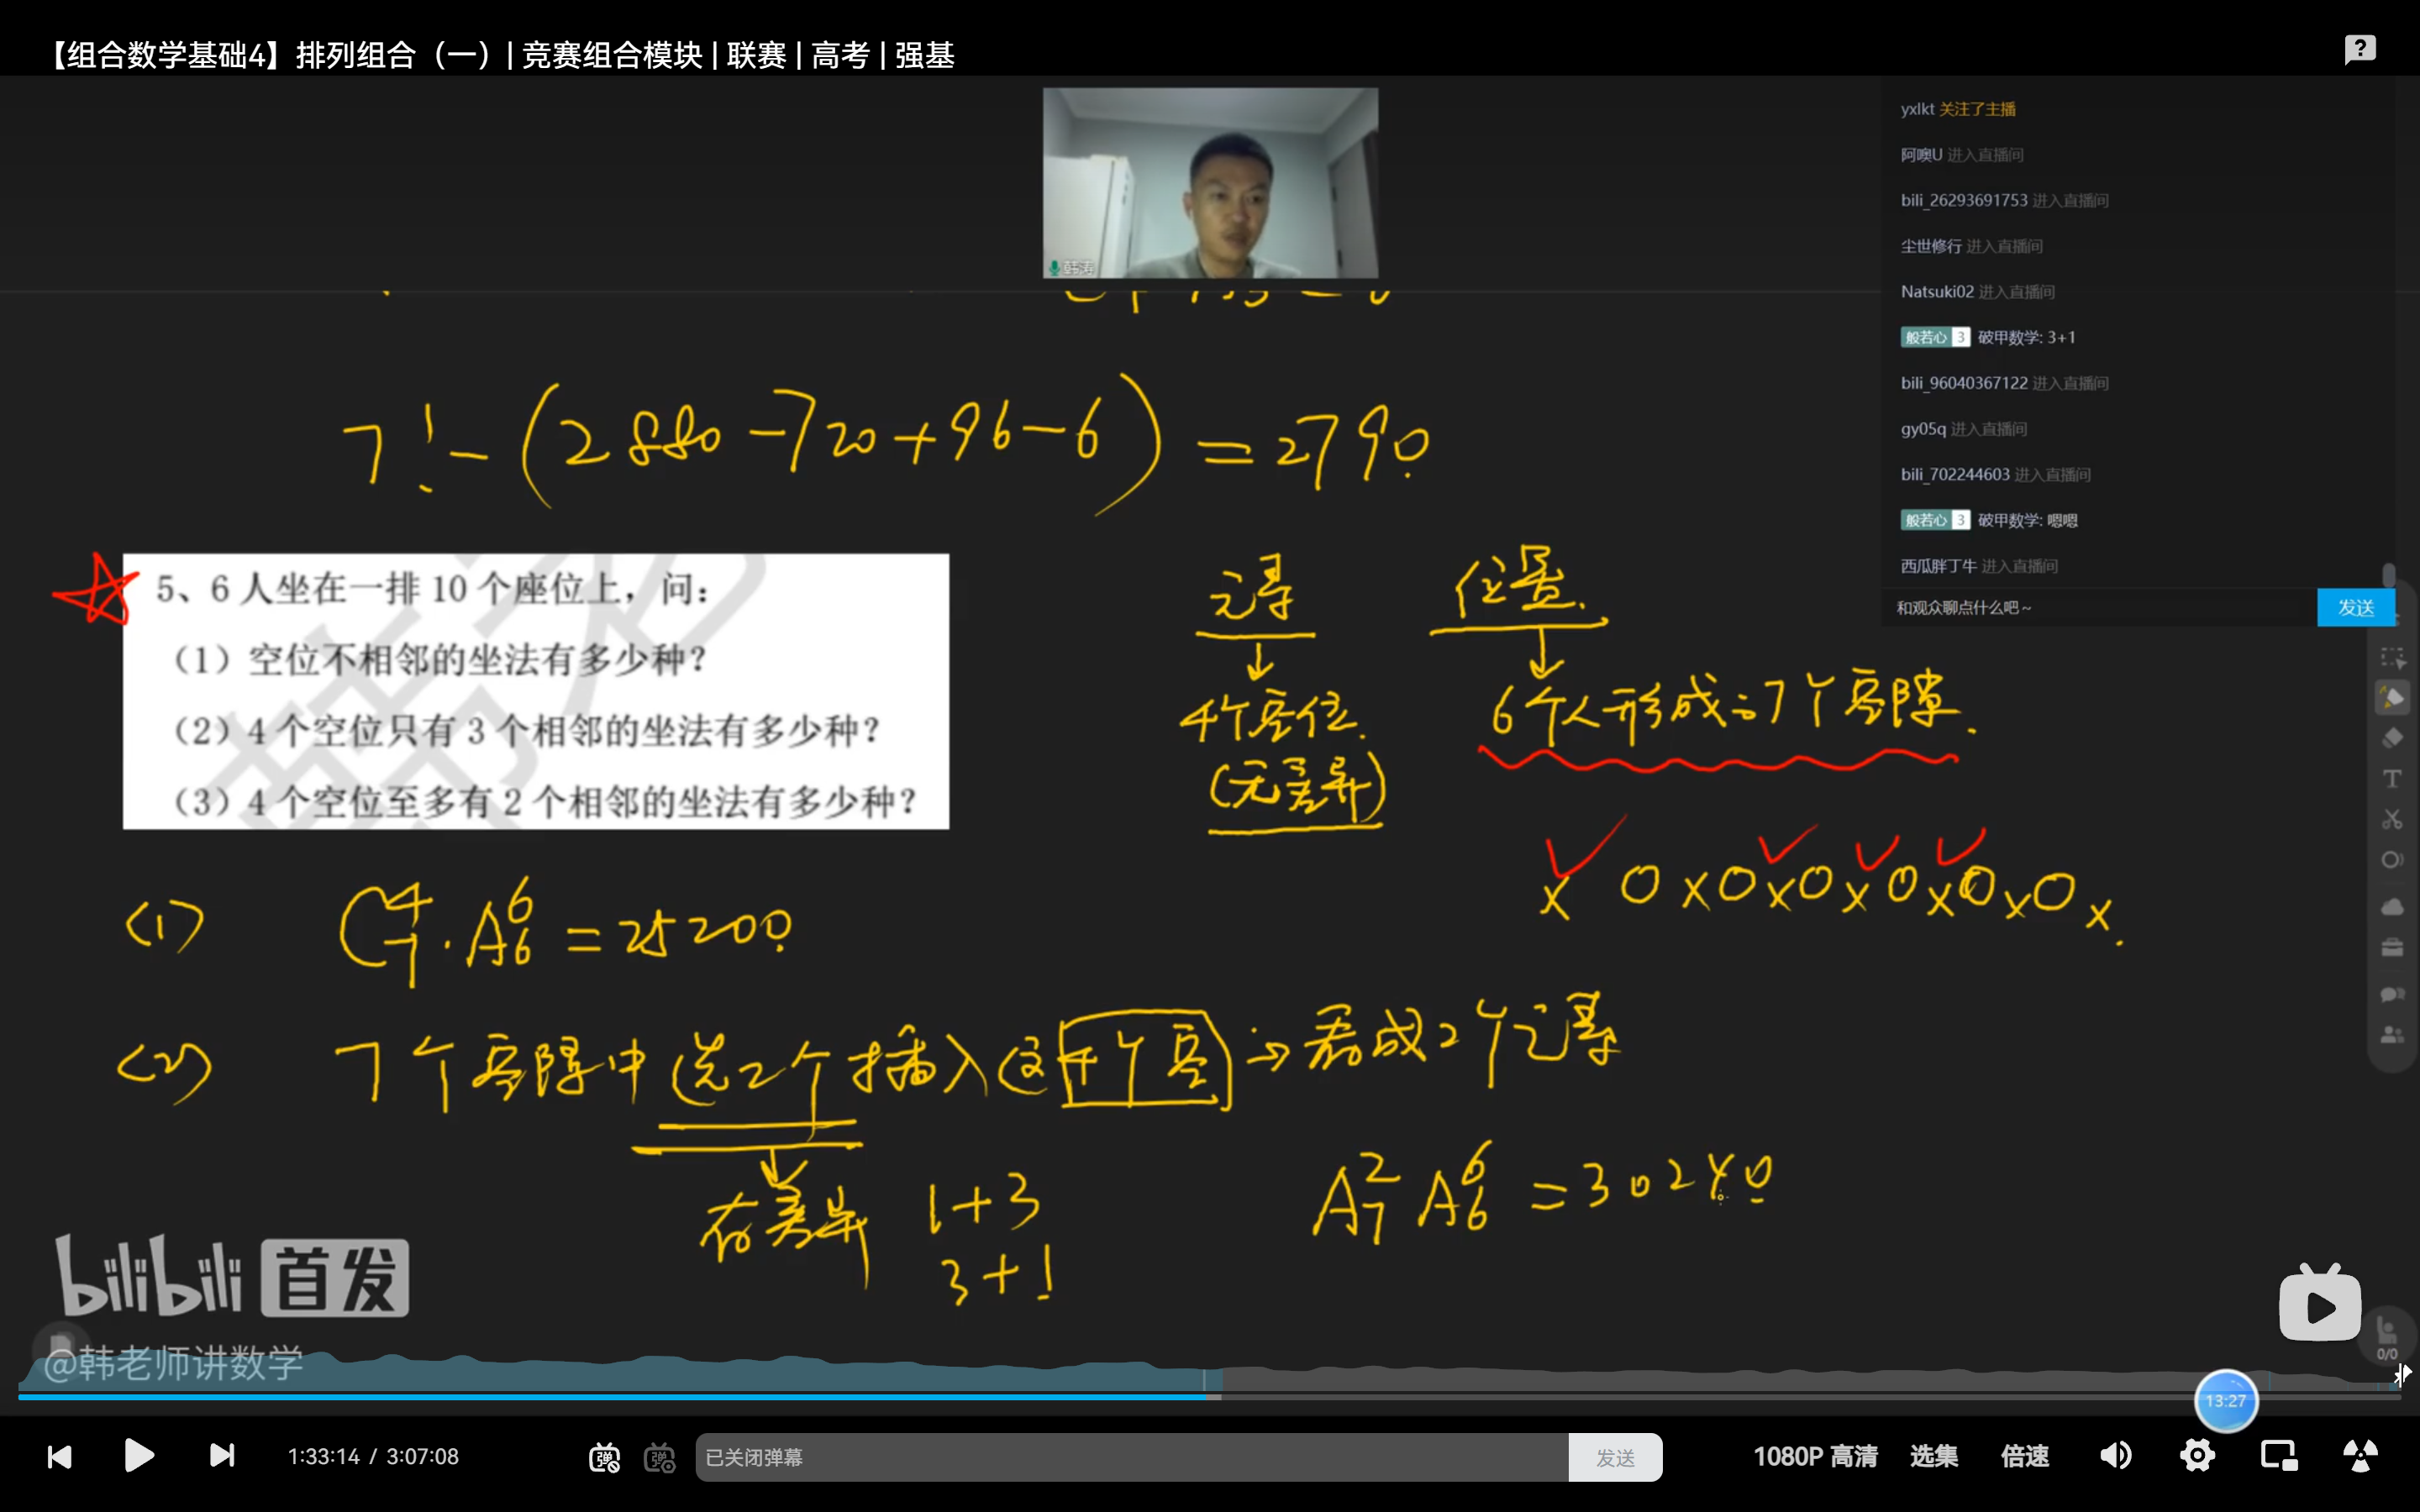 【组合数学基础4】排列组合（一）| 竞赛组合模块 | 联赛 | 高考 | 强基
韩涛
yxlkt 关注了主播
阿噢U 进入直播间
bili_26293691753 进入直播间
尘世修行 进入直播间
Natsuki02 进入直播间
般若心 3 破甲数学: 3+1
bili_96040367122 进入直播间
gy05q 进入直播间
bili_702244603 进入直播间
般若心 3 破甲数学: 嗯嗯
西瓜胖丁牛 进入直播间
和观众聊点什么吧~
发送
7!-(2880-720+96-6)=2790
5、6 人坐在一排 10 个座位上，问：
（1）空位不相邻的坐法有多少种？
（2）4 个空位只有 3 个相邻的坐法有多少种？
（3）4 个空位至多有 2 个相邻的坐法有多少种？
元素 位置.
4个空位. 6个人形成的7个空隙.
(无差异)
x O x O x O x O x O x O x.
(1) C₇⁴·A₆⁶=25200
(2) 7个空隙中选2个插入这4个空 看成2个元素
有差异 1+3
3+1
A₇²A₆⁶=30240
bilibili 首发
@韩老师讲数学
0/0
13:27
1:33:14 / 3:07:08
弹
弹
已关闭弹幕
发送
1080P 高清
选集
倍速